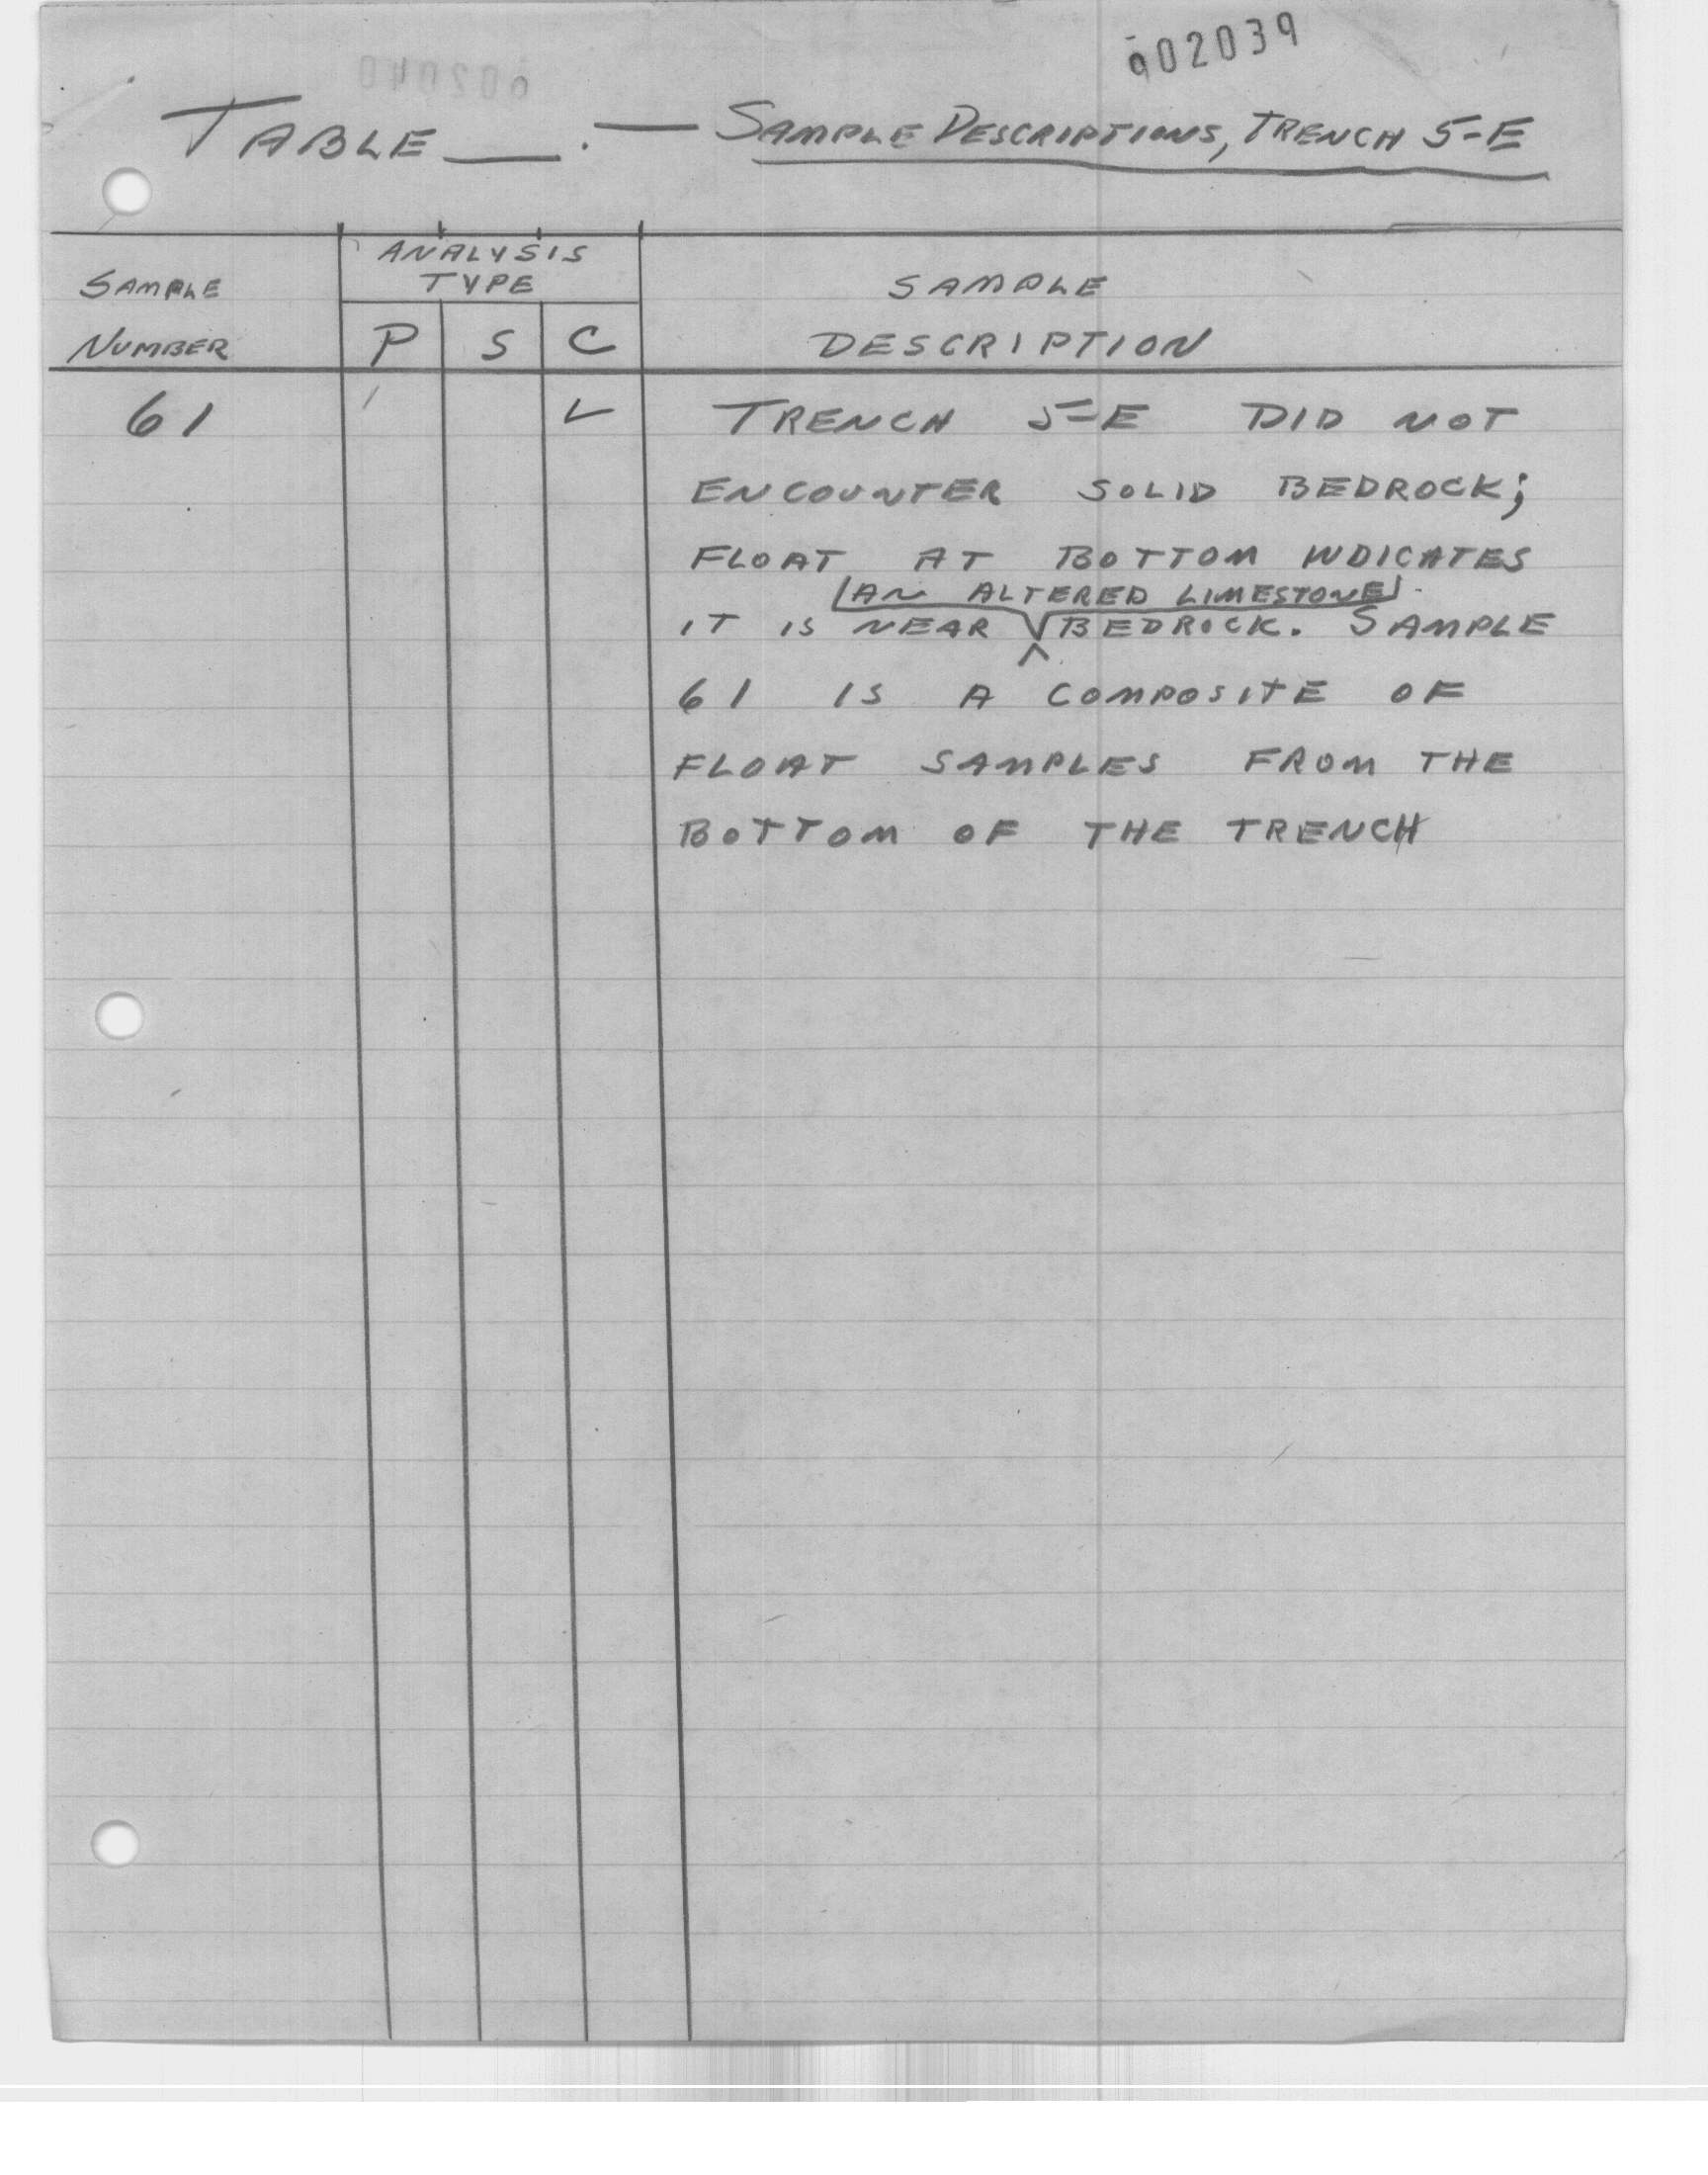 002039
002040
TABLE ___. — SAMPLE DESCRIPTIONS, TRENCH 5-E
ANALYSIS
TYPE
SAMPLE
NUMBER
P S C
SAMPLE
DESCRIPTION
61 ✓ TRENCH 5-E DID NOT
ENCOUNTER SOLID BEDROCK;
FLOAT AT BOTTOM INDICATES
AN ALTERED LIMESTONE
IT IS NEAR BEDROCK. SAMPLE
61 IS A COMPOSITE OF
FLOAT SAMPLES FROM THE
BOTTOM OF THE TRENCH